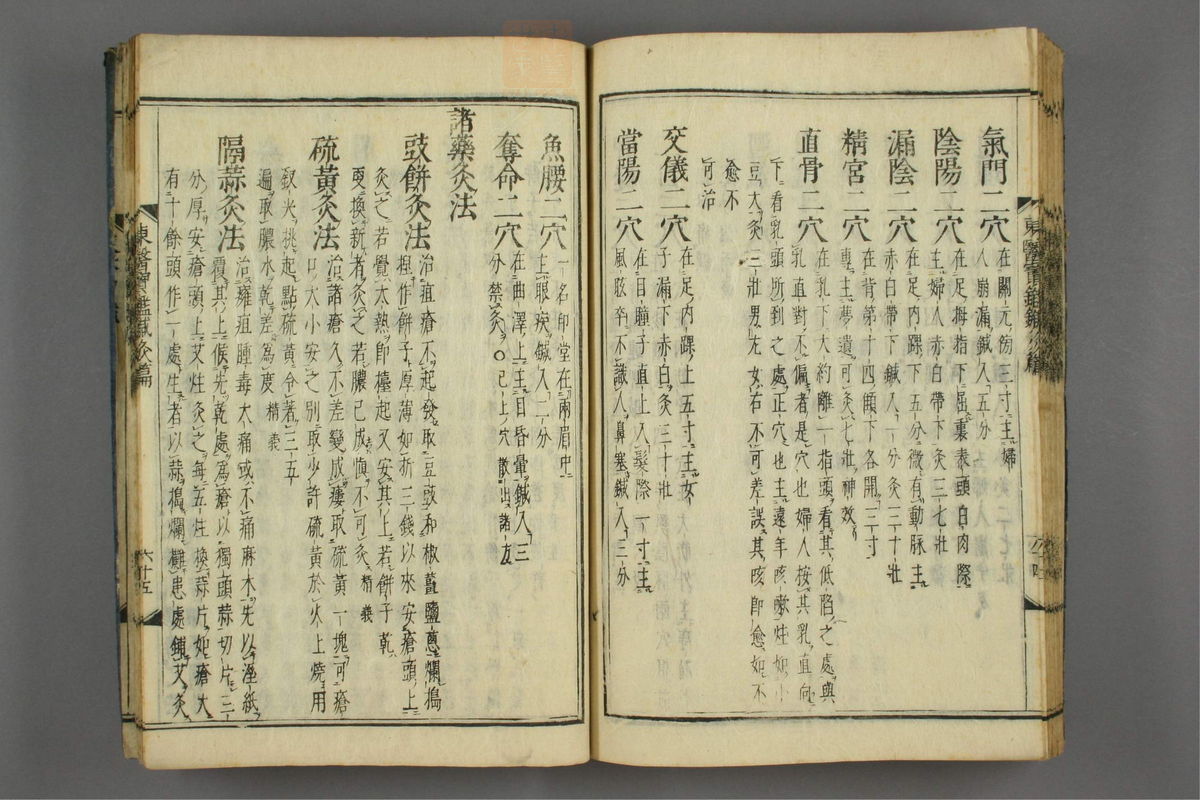 氣門二穴 在關元傍三寸主婦
人崩漏鍼入五分
陰陽二穴 在足拇指下屈裏表頭白肉際
主婦人赤白帶下灸三七壯
漏陰二穴 在足內踝下五分微有動脉主
赤白帶下鍼入一分灸三十壯
精宮二穴 在背第十四顀下各開三寸
專主夢遺可灸七壯神效
直骨二穴 在乳下大約離一指頭看其低陷之處與
乳直對不偏者是穴也婦人按其乳直向
下看乳頭所到之處正穴也主遠年咳嗽炷如小
豆大灸三壯男左女右不可差誤其咳即愈如不
愈不
可治
交儀二穴 在足內踝上五寸主女
子漏下赤白灸三十壯
當陽二穴 在目瞳子直上入髮際一寸主
風眩卒不識人鼻塞鍼入三分
魚腰二穴 一名印堂在兩眉中
主眼疾鍼入二分
奪命二穴 在曲澤上主目昏暈鍼入三
分禁灸○已上穴散出諸方
諸藥灸法
豉餅灸法 治疽瘡不起發取豆豉和椒薑鹽葱爛搗
捏作餅子厚薄如折三錢以來安瘡頭上
灸之若覺太熱即擡起又安其上若餅子乾
更換新者灸之若膿已成愼不可灸 精義
硫黃灸法 治諸瘡久不差變成瘻取硫黃一塊可瘡
口大小安之別取少許硫黃於火上燒用
釵尖挑起點硫黃令著三五
遍取膿水乾差爲度 精義
隔蒜灸法 治癰疽腫毒大痛或不痛麻木先以濕紙
覆其上候先乾處爲瘡以獨頭蒜切片三
分厚安瘡頭上艾炷灸之每五炷換蒜片如瘡大
有十餘頭作一處生者以蒜搗爛攤患處鋪艾灸
東醫寶鑑鍼灸篇
六十五